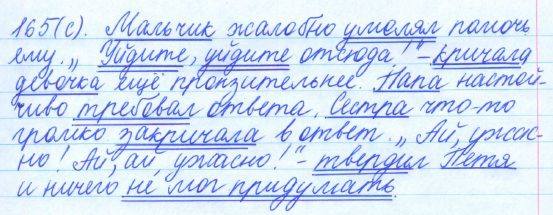 165(с). Мальчик жалобно умолял помочь
ему. „Уйдите, уйдите отсюда!" – кричала
девочка ещё пронзительнее. Папа настой-
чиво требовал ответа. Сестра что-то
громко закричала в ответ. „Ай, ужас-
но! Ай, ай, ужасно!" – твердил Петя
и ничего не мог придумать.